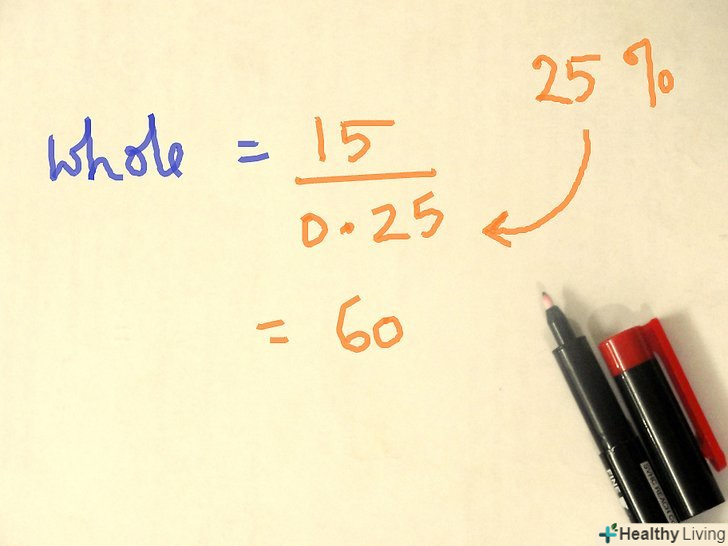 25 %
whole = 15
0.25
= 60
FINE
Healthy Living